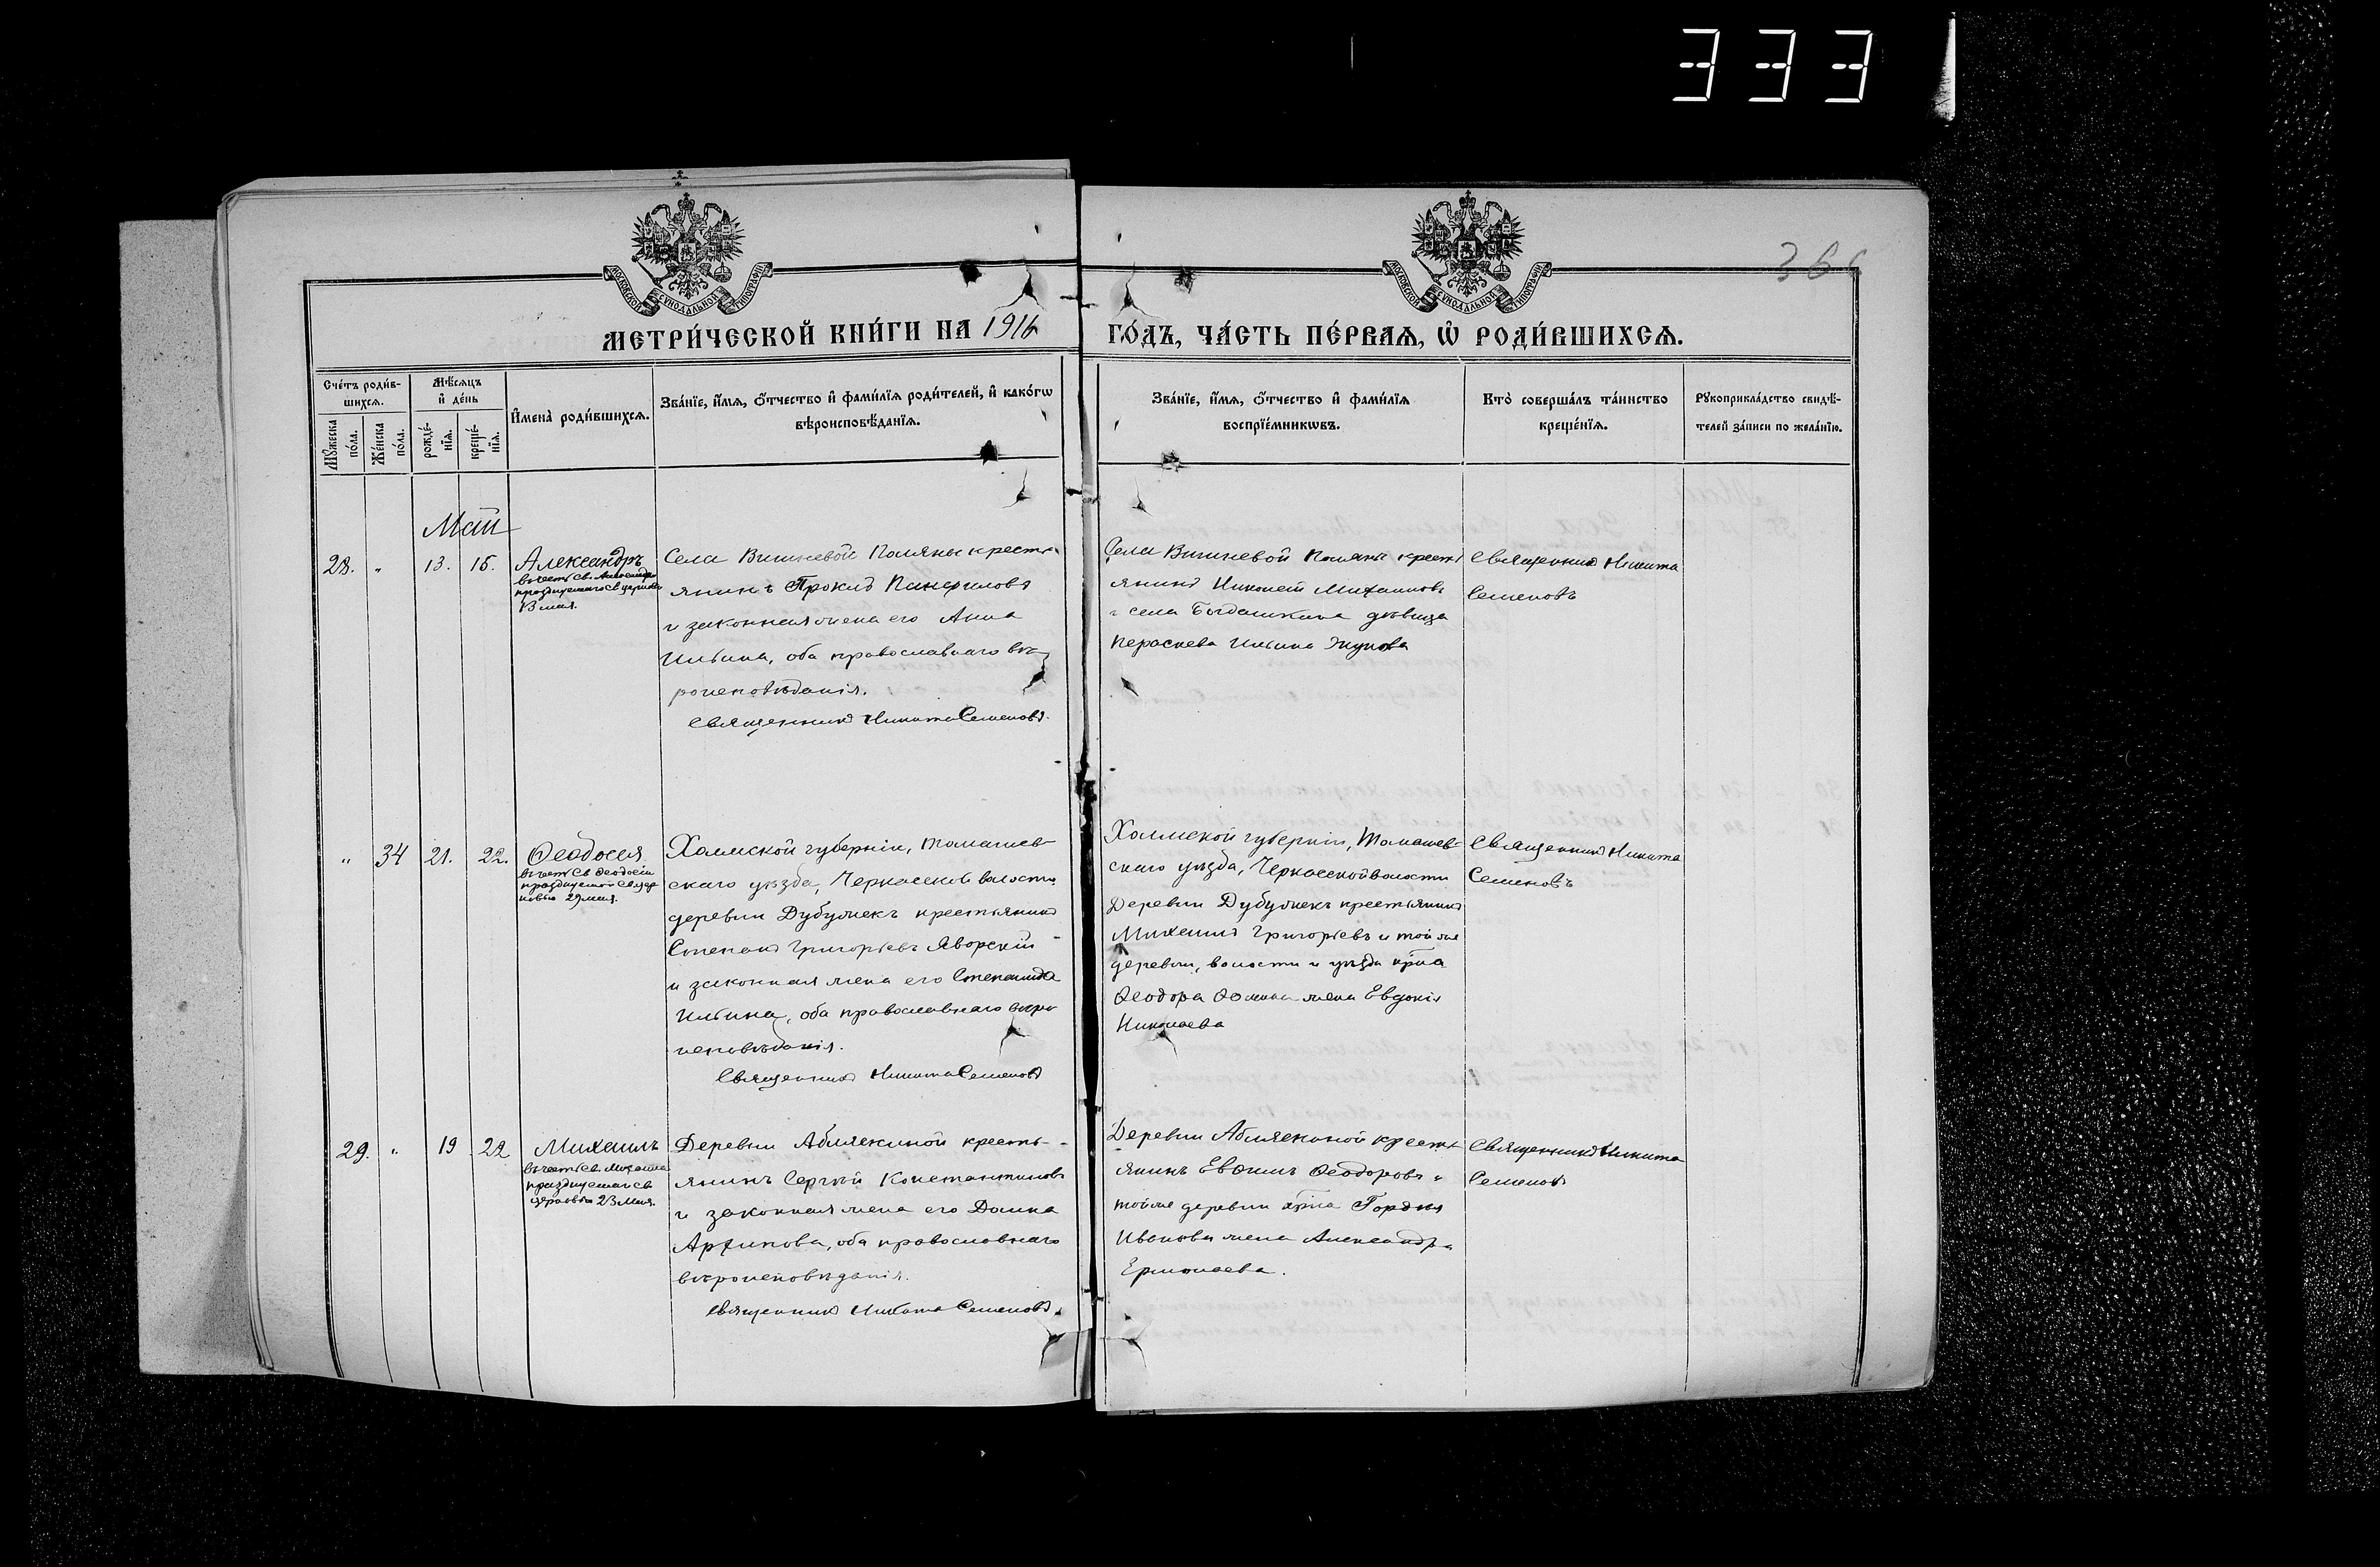 333
366
МОСКОВСКОЙ СѴНОДАЛЬНОЙ ТИПОГРАФІИ
МОСКОВСКОЙ СѴНОДАЛЬНОЙ ТИПОГРАФІИ
МЕТРИ́ЧЕСКОЙ КНИ́ГИ НА 1916 ГО́ДЪ, ЧА́СТЬ ПЕ́РВАѦ, Ѡ҆ РОДИ́ВШИХСѦ.
Сче́тъ роди́в-
шихсѧ.
Мѣ́сѧцъ
и҆ де́нь
И҆мена̀ роди́вшихсѧ.
Зва́нїе, и҆́мѧ, ѻ҆́тчество и҆ фами́лїѧ роди́телей, и҆ како́гѡ
вѣроисповѣ́данїѧ.
Зва́нїе, и҆́мѧ, ѻ҆́тчество и҆ фами́лїѧ
воспрїе́мникѡвъ.
Кто̀ соверша́лъ та́инство
креще́нїѧ.
Рꙋкоприкла́дство свидѣ́-
телей за́писи по жела́нїю.
Мꙋ́жеска
по́ла.
Же́нска
по́ла.
рожде́-
нїѧ.
креще́-
нїѧ.
Май
28. " 13. 15. Александръ
въ честь св. Александра
празднуемаго св церковью
13 мая.
Села Вишневой Поляны кресть-
янинъ Прокл Панфиловъ
и законная жена его Анна
Ильина, оба православнаго вѣ-
роисповѣданія.
Священникъ Никита Семеновъ.
Села Вишневой Поляны кресть
янинъ Николай Михаиловъ
и села Богдашкина дѣвица
Пераскева Ильина
Священникъ Никита
Семеновъ
" 34 21. 22. Ѳеодосія
въ честь св Ѳеодосіи
празднуемой св цер
ковью 29 мая.
Холмской губерніи, Томашев-
скаго уѣзда, Черкасской волости
деревни Дубужекъ крестьянинъ
Степанъ Григорьевъ Яворскій
и законная жена его Степанида
Ильина, оба православнаго вѣро
исповѣданія.
Священникъ Никита Семеновъ
Холмской губерніи, Томашев-
скаго уѣзда, Черкасской волости
Деревни Дубужекъ крестьянинъ
Михаилъ Григорьевъ и той же
деревни, волости и уѣзда кр-на
Ѳеодора Ѳомина жена Евдокія
Николаева
Священникъ Никита
Семеновъ
29. " 19 22 Михаилъ
въ честь св. Михаила
празднуемаго св
церковью 23 мая.
Деревни Абляскиной кресть-
янинъ Сергѣй Константиновъ
и законная жена его Домна
Архипова, оба православнаго
вѣроисповѣданія.
Священникъ Никита Семеновъ.
Деревни Абляскиной кресть
янинъ Евѳимъ Ѳеодоровъ и
той же деревни кр-на Гордея
Иванова жена Александра
Ермолаева.
Священникъ Никита
Семеновъ